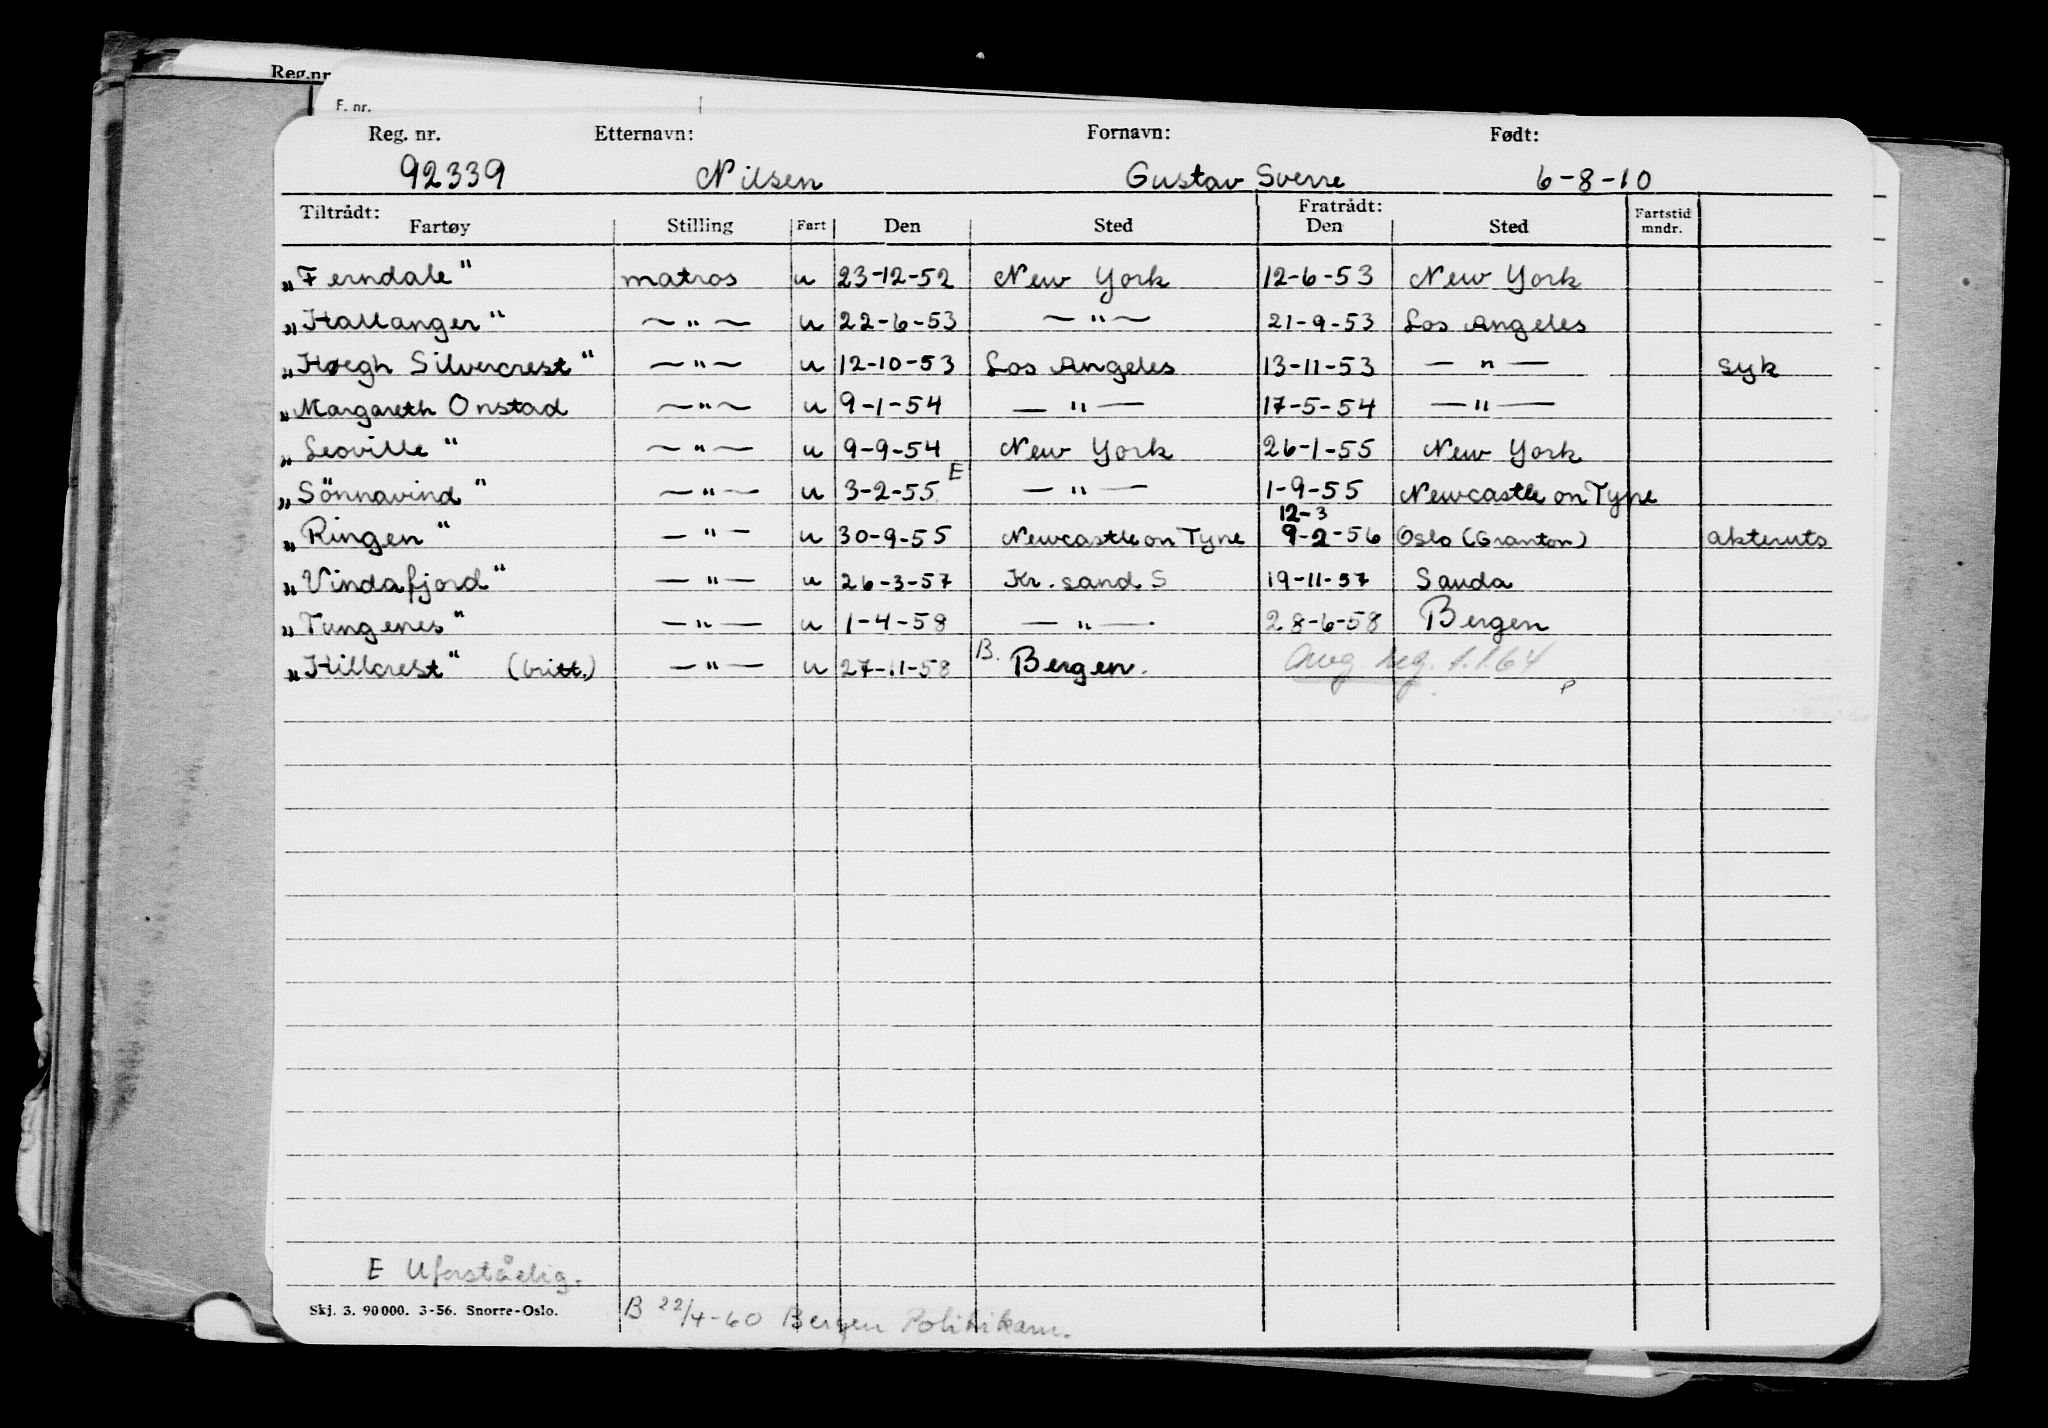 Reg.nr
F. nr.
Reg. nr. Etternavn: Fornavn: Født:
92339 Nilsen Gustav Sverre 6-8-10
Tiltrådt: Fratrådt:
Fartøy Stilling Fart Den Sted Den Sted Fartstid mndr.
„Ferndale" matros u 23-12-52 New York 12-6-53 New York
„Hallanger" ~"~ u 22-6-53 ~"~ 21-9-53 Los Angeles
„Høegh Silvercrest" —"— u 12-10-53 Los Angeles 13-11-53 —"— syk
„Margareth Onstad ~"~ u 9-1-54 —"— 17-5-54 —"—
„Leoville" ~"— u 9-9-54 New York 26-1-55 New York
„Sönnavind" —"— u 3-2-55 E —"— 1-9-55 Newcastle on Tyne
12-3
„Ringen" —"— u 30-9-55 Newcastle on Tyne 9-2-56 Oslo (Granton) akteruts
„Vindafjord" —"— u 26-3-57 Kr. sand S 19-11-57 Sauda
„Tungenes" —"— u 1-4-58 —"— 28-6-58 Bergen
„Hillcrest" (britt.) —"— u 27-11-58 B. Bergen. Avg. reg. 1.1.64
E Uforståelig.
Skj. 3. 90000. 3-56. Snorre-Oslo.
B 22/4-60 Bergen Politikam.